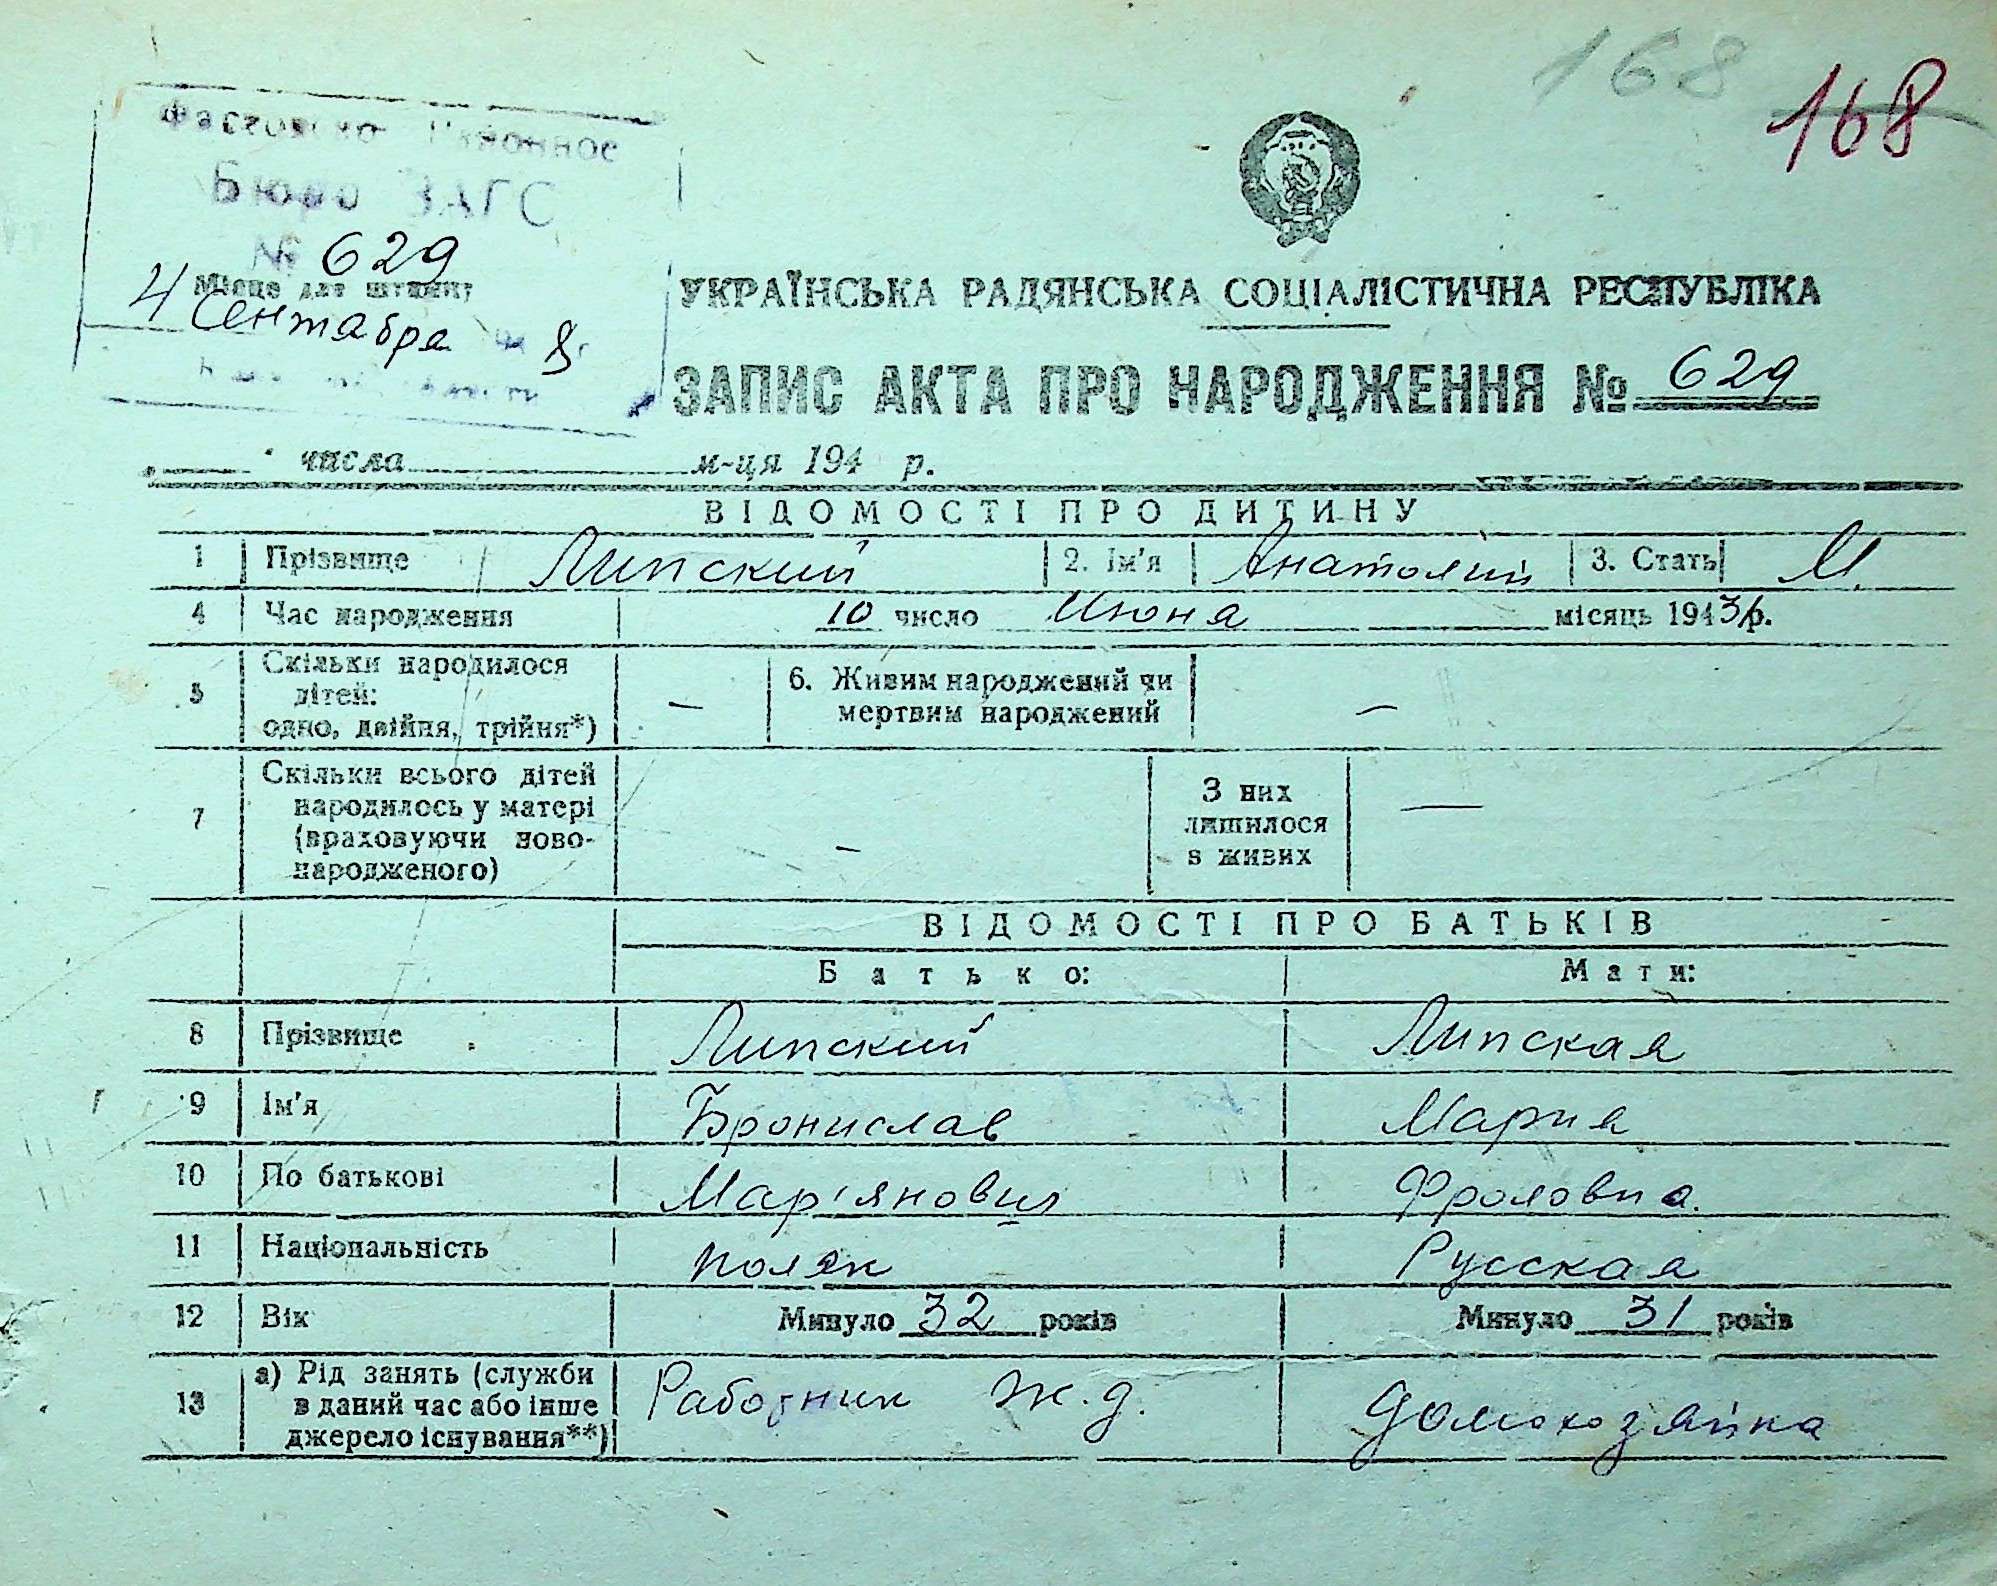 168 168
Районное
Бюро ЗАГС
№ 629
Місце для штампу
4 Сентября 8
УКРАЇНСЬКА РАДЯНСЬКА СОЦІАЛІСТИЧНА РЕСПУБЛІКА
ЗАПИС АКТА ПРО НАРОДЖЕННЯ № 629
числа м-ця 194 р.
ВІДОМОСТІ ПРО ДИТИНУ
1 Прізвище Липский 2. Ім'я Анатолий 3. Стать М.
4 Час народження 10 число Июня місяць 1943 р.
5 Скільки народилося дітей: одно, двійня, трійня*) — 6. Живим народжений чи мертвим народжений —
7 Скільки всього дітей народилось у матері (враховуючи ново-народженого) — З них лишилося в живих —
ВІДОМОСТІ ПРО БАТЬКІВ
Батько: Мати:
8 Прізвище Липский Липская
9 Ім'я Бронислав Мария
10 По батькові Мар'янович Фроловна.
11 Національність поляк Русская
12 Вік Минуло 32 років Минуло 31 років
13 а) Рід занять (служби в даний час або інше джерело існування**) Работник ж.д. домохозяйка